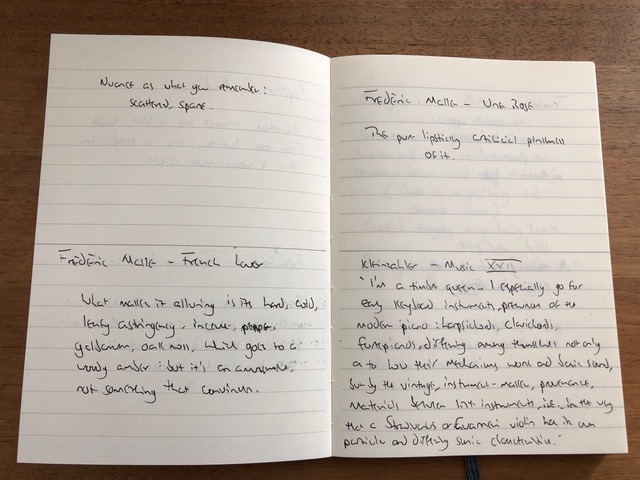 Nuance as what you remember:
scattered, sparse.
Frédéric Malle – French Lover
What makes it alluring is its hard, cold,
leafy astringency, incense, pepper,
galbanum, oak moss, which goes to a
woody amber: but it's an
not something that convinces.
Frédéric Malle – Une Rose
The pure lipsticky artificial pinkness
of it.
Kleinzahler – Music XXII
'I'm a timbre queen. I especially go for
early keyboard instruments, precursors of the
modern piano: harpsichords, clavichords,
fortepianos, differing among themselves not only
as to how their mechanisms work and sonic sound,
but by the vintage, instrument-maker, provenance,
materials between like instruments, i.e. in the way
that a Stradivarius or Guarneri violin has its own
particular and differing sonic characteristics.'